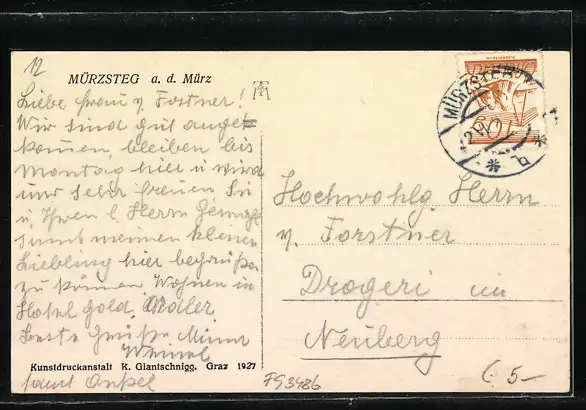 12
MÜRZSTEG a. d. Mürz
Liebe Frau v. Forstner!
Wir sind gut ange-
kommen, bleiben bis
Montag hier u wird
uns sehr freuen Sie
u. Ihren l. Herrn Gemahl
samt meinen kleinen
Liebling hier begrüßen
zu können Wohnen in
Hotel gold. Adler
Beste Grüße Minna
samt Onkel
Kunstdruckanstalt K. Glantschnigg, Graz 1927
MÜRZSTEG
Hochwohlg. Herrn
v. Forstner
Drogeri in
Neuberg
FG3486
5-